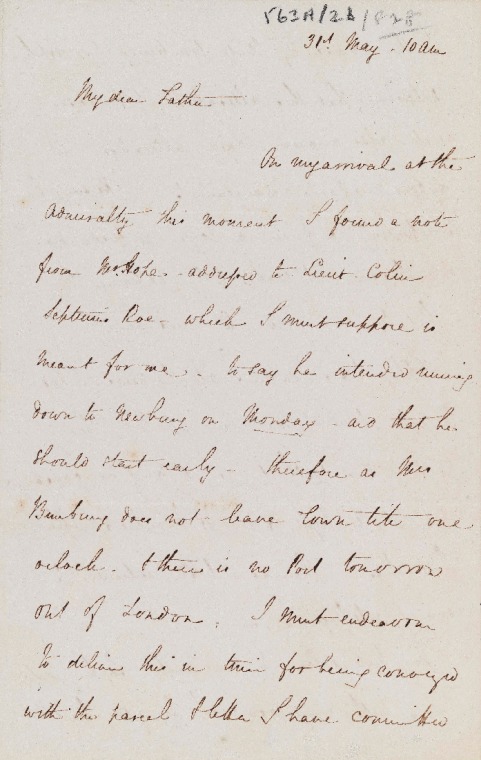 563A/26/828
31st May. 10 am
My dear Father
On my arrival at the
Admiralty this moment I found a note
from Mr. Hope - addressed to Lieut. Colin
Septimus Roe - which I must suppose is
meant for me. to say he intended running
down to Newbury on Monday - and that he
should start early - therefore as Mrs
Bunbury does not leave Town till one
oclock. & there is no Post tomorrow
out of London, I must endeavour
to deliver this in time for being conveyed
with the parcel & letter I have committed